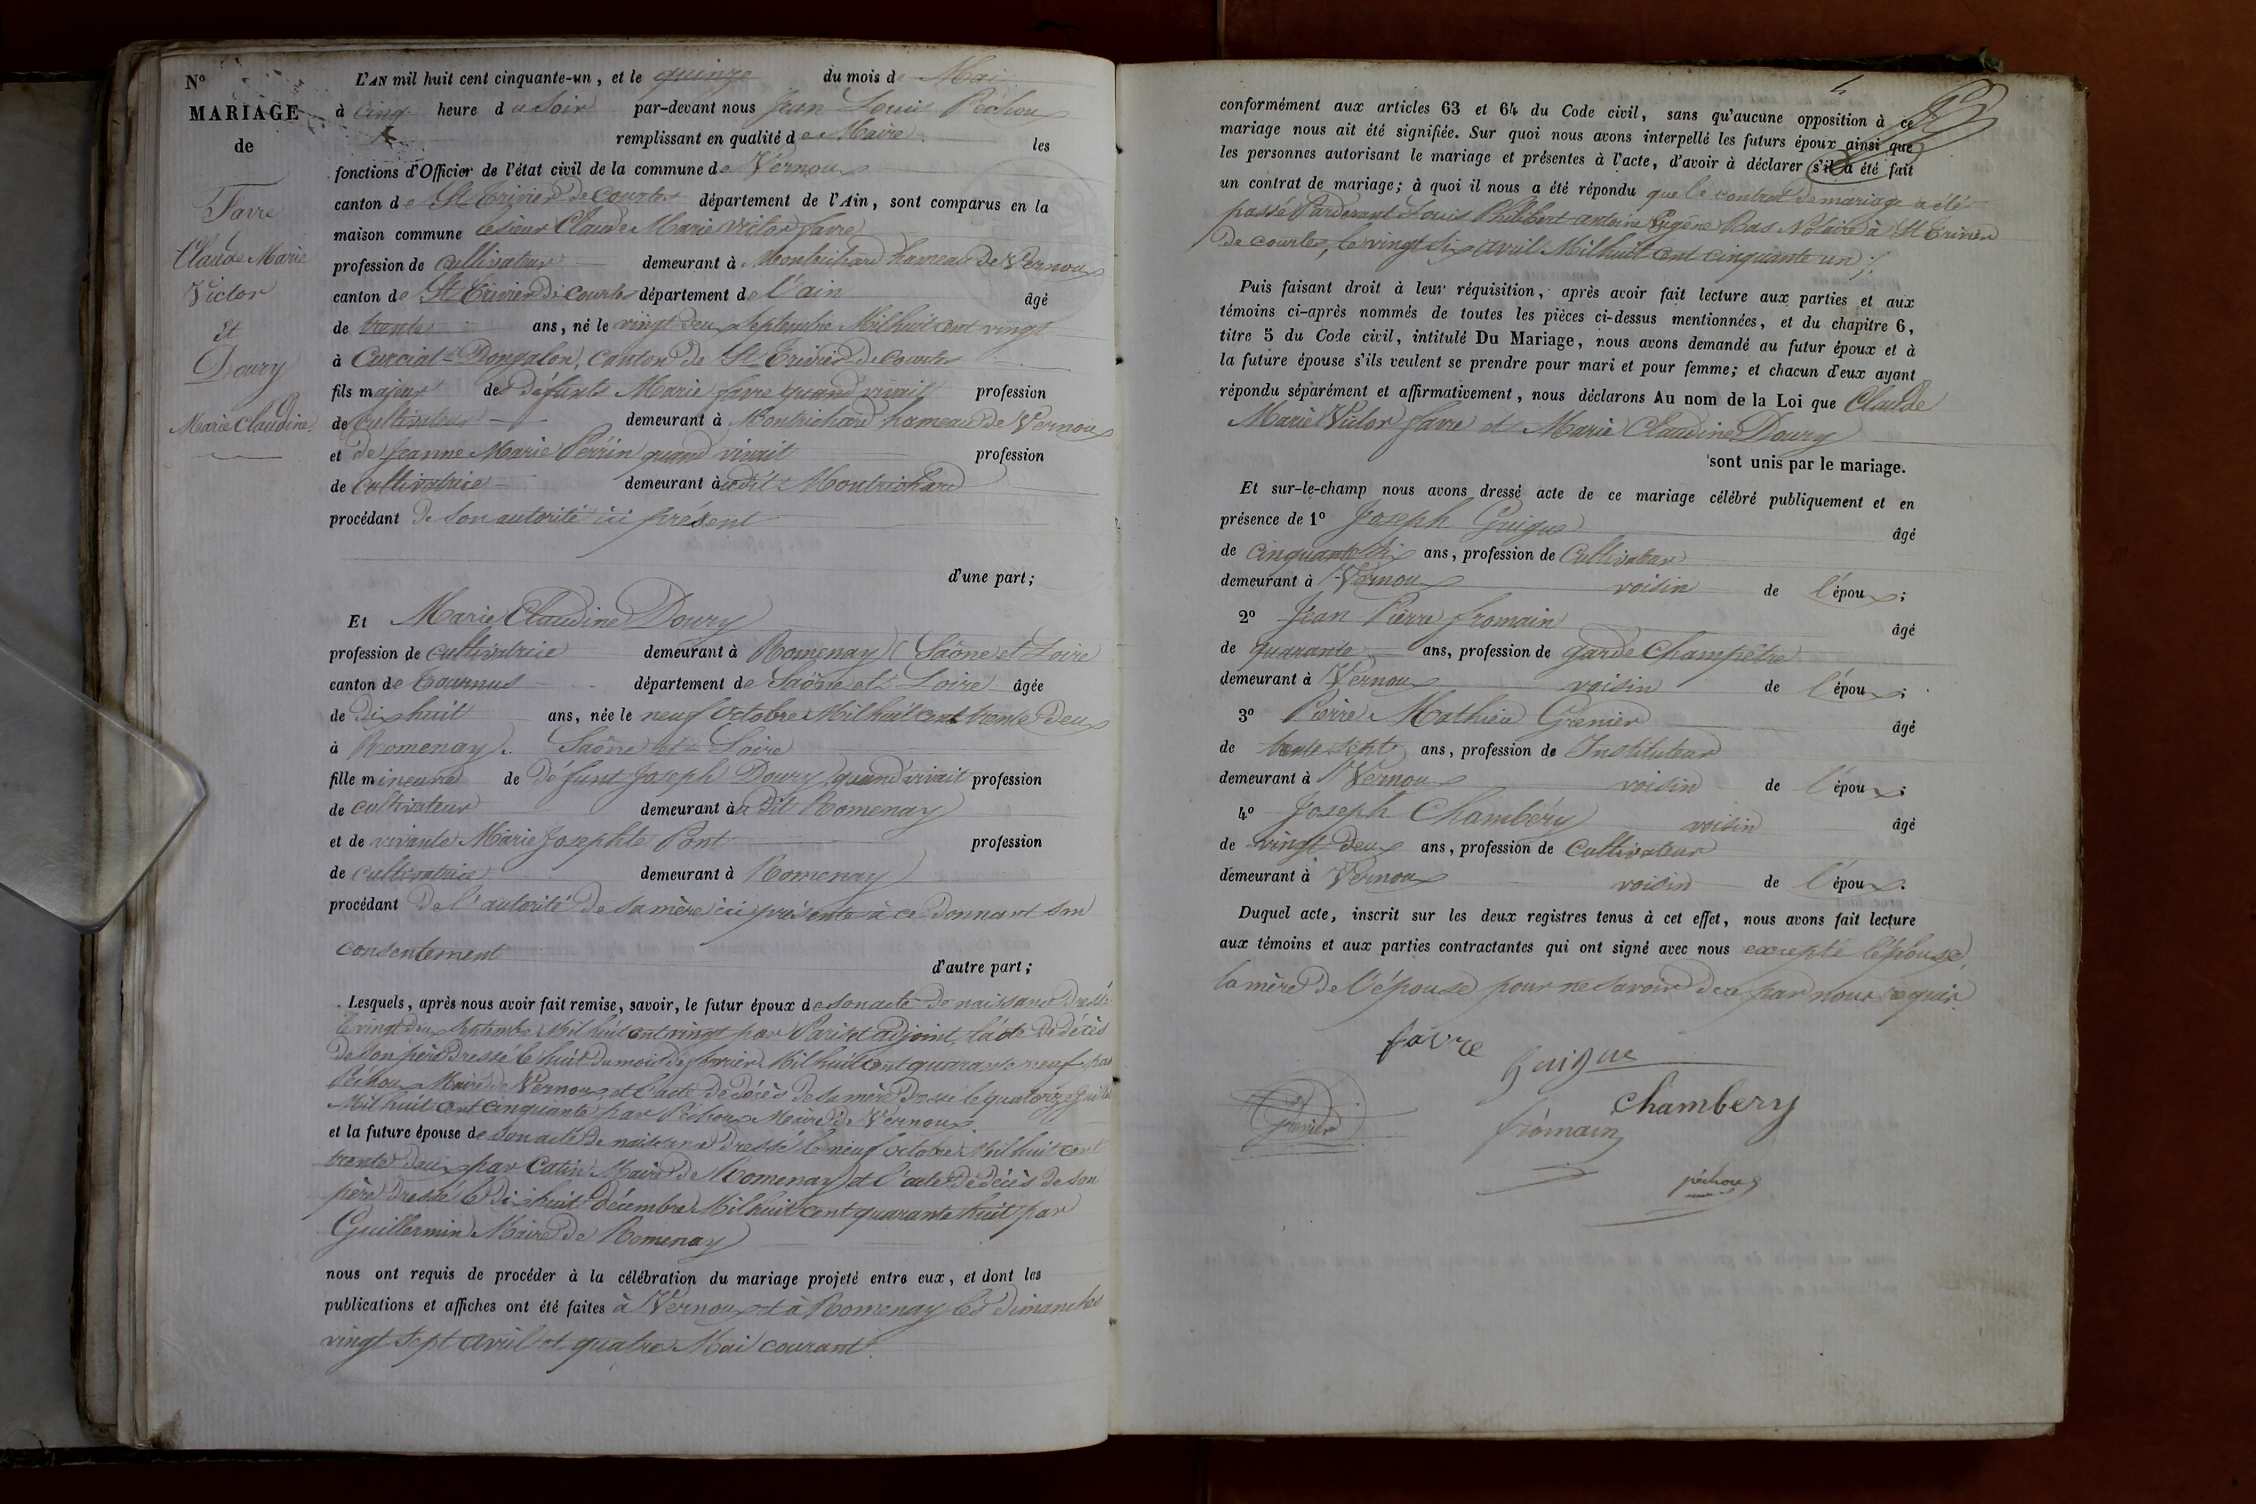 N°
MARIAGE
de
Favre
Claude Marie
Victor
Et
Doury
Marie Claudine.
L'AN mil huit cent cinquante-un, et le quinze du mois de Mai
à cinq heure du Soir par-devant nous Jean Louis Péchoux
remplissant en qualité de Maire les
fonctions d'Officier de l'état civil de la commune de Vernoux
canton de St Trivier de Courtes département de l'Ain, sont comparus en la
maison commune le sieur Claude Marie Victor favre
profession de cultivateur demeurant à Montrichard hameau de Vernoux
canton de St Trivier de Courtes département de l'ain âgé
de trente ans, né le vingt deux Septembre Mil huit cent vingt
à Curciat-Dongalon, canton de St Trivier de Courtes
fils majeur de défunts Marie favre quand vivait profession
de cultivateur demeurant à Montrichard hameau de Vernoux
et de Jeanne Marie Perrin quand vivait profession
de cultivatrice demeurant à dit Montrichard
procédant de son autorité ici présent
d'une part;
Et Marie Claudine Doury
profession de cultivatrice demeurant à Romenay (Saône et Loire
canton de tournus département de Saône et Loire âgée
de dix huit ans, née le neuf Octobre Mil huit cent trente deux
à Romenay. Saône et Loire
fille mineure de défunt Joseph Doury quand vivait profession
de cultivateur demeurant à dit Romenay
et de vivante Marie Josephte Pont profession
de cultivatrice demeurant à Romenay
procédant de l'autorité de sa mère ici présente à ce donnant son
consentement
d'autre part;
Lesquels, après nous avoir fait remise, savoir, le futur époux de son acte de naissance dressé
le vingt deux Septembre Mil huit cent vingt par Pariset adjoint, l'acte de décès
de son père dressé le huit du mois de février Mil huit cent quarante neuf par
Péchoux Maire de Vernoux et l'acte de décès de sa mère dressé le quatorze
Mil huit cent cinquante par Péchoux Maire de Vernoux
et la future épouse de son acte de naissance dressé le neuf Octobre Mil huit cent
trente deux par Catin Maire de Romenay et l'acte de décès de son
père dressé le dix huit décembre Mil huit cent quarante huit par
Guillermin Maire de Romenay
nous ont requis de procéder à la célébration du mariage projeté entre eux, et dont les
publications et affiches ont été faites à Vernoux et à Romenay les dimanches
vingt sept avril et quatre Mai courant.
conformément aux articles 63 et 64 du Code civil, sans qu'aucune opposition à ce
mariage nous ait été signifiée. Sur quoi nous avons interpellé les futurs époux ainsi que
les personnes autorisant le mariage et présentes à l'acte, d'avoir à déclarer s'il a été fait
un contrat de mariage; à quoi il nous a été répondu que le contrat de mariage a été
passé Pardevant Louis Philibert antoine Eugène Bas Notaire à St Trivier
de courtes, le vingt six avril Mil huit cent cinquante un;
Puis faisant droit à leur réquisition, après avoir fait lecture aux parties et aux
témoins ci-après nommés de toutes les pièces ci-dessus mentionnées, et du chapitre 6,
titre 5 du Code civil, intitulé Du Mariage, nous avons demandé au futur époux et à
la future épouse s'ils veulent se prendre pour mari et pour femme; et chacun d'eux ayant
répondu séparément et affirmativement, nous déclarons Au nom de la Loi que Claude
Marie Victor favre et Marie Claudine Doury
sont unis par le mariage.
Et sur-le-champ nous avons dressé acte de ce mariage célébré publiquement et en
présence de 1° Joseph Guigue âgé
de cinquante six ans, profession de Cultivateur
demeurant à Vernoux voisin de l'époux;
2° Jean Pierre fromain âgé
de quarante ans, profession de garde Champêtre
demeurant à Vernoux voisin de l'époux;
3° Pierre Mathieu Grenier âgé
de trente sept ans, profession de Instituteur
demeurant à Vernoux voisin de l'époux;
4° Joseph Chambéry voisin âgé
de vingt deux ans, profession de Cultivateur
demeurant à Vernoux voisin de l'époux.
Duquel acte, inscrit sur les deux registres tenus à cet effet, nous avons fait lecture
aux témoins et aux parties contractantes qui ont signé avec nous excepté l'épouse,
la mère de l'épouse pour ne savoir de ce par nous requis.
favre
guigue
Chambery
Grenier
fromain
péchoux